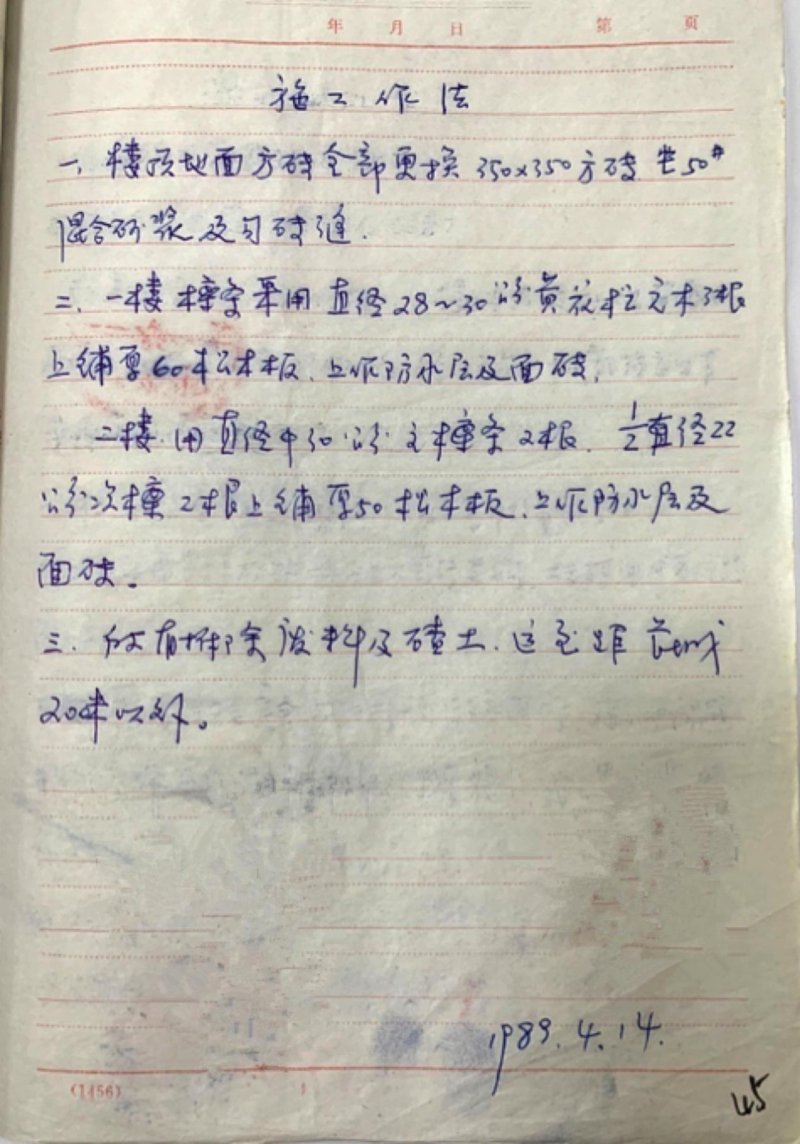 年 月 日 第 页
施工作法
一、楼顶地面方砖全部更换350×350方砖坐50#
混合砂浆及勾砖缝.
二、一楼檩条采用直径28~30公分黄花松元木3根
上铺厚60松木板、上作防水层及面砖,
二楼用直径中30公分主檩条2根、½直径22
公分次檩2根上铺厚50松木板、上作防水层及
面砖。
三、所有拆除废料及碴土、运至距长城
20米以外。
1989.4.14.
(1456)
45